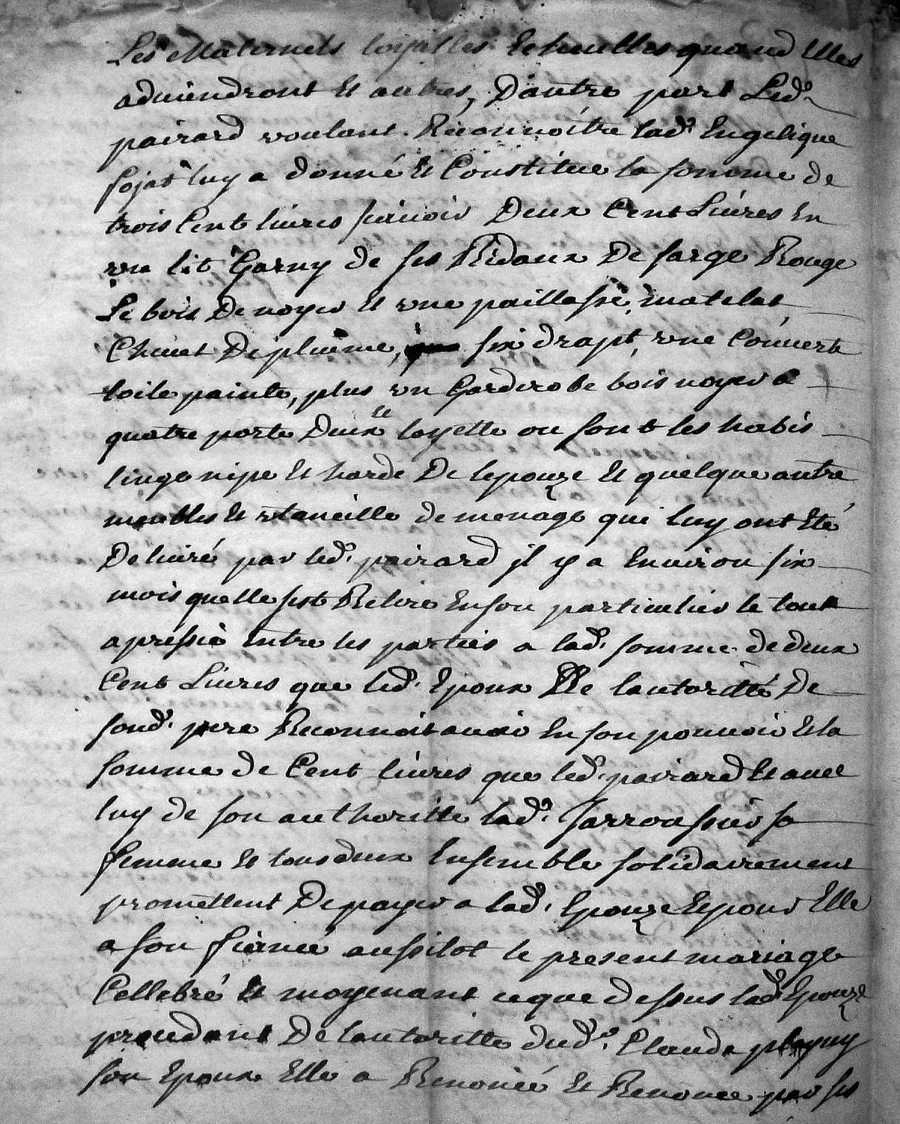 Les Maternels loyalles Echuelles quand Elles
adviendront Et autres, Dautre part Led.
pairard voulant Reconnoitre lad. Engelique
fojat luy a donné Et Constitue la somme de
trois Cent livres scavoir Deux Cent Livres En
un lit Garny de ses Ridaux De sarge Rouge
Le bois De noyer Et une paillasse, matelat
Chevet De plume, six drapt, une Couverte
toile painte, plus un Garderobe bois noyer a
quatre porte Deux layette ou sont les habis
linge nipe Et harde De lepouze Et quelque autre
meubles Et utancille de menage qui luy ont Eté
Delivré par led. pairard il y a Environ six
mois quelle sest Retire En son particulier le tout
apressié Entre les parties a lad. somme de deux
Cent Livres que led. Epoux De lautoritté De
sond. pere Reconnoit avoir En son pouvoir Et la
somme de Cent livres que led. pairard Et avec
luy de son authoritte lad. Jarroussier sa
femme Et tous deux Ensemble solidairement
promettent De payer a lad. Epouze Et pour Elle
a son fiance aussitot le present mariage
Cellebré Et moyenant ce que dessus lad. Epouze
prendant De lautoritte dud. Claude
son Epoux Elle a Renoncé Et Renonce par ses